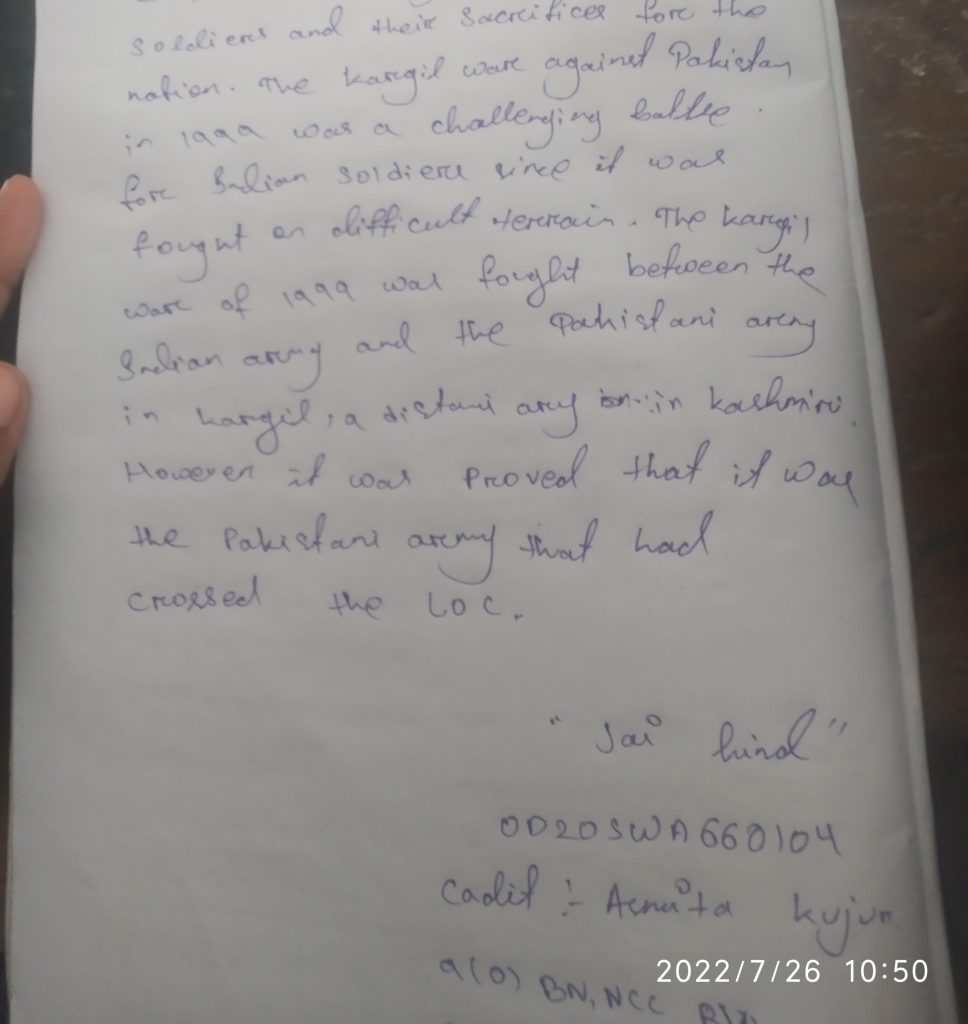 soldiers and their sacrifices fore the
nation. The kargil ware against Pakistan
in 1999 was a challenging battle.
fore Indian soldiers since it was
fought on difficult terrain. The kargil
ware of 1999 was fought between the
Indian army and the Pakistani army
in kargil, a distani any in kashmiri.
However it was proved that it was
the Pakistani army that had
crossed the LOC.
"Jai hind"
OD20SWA660104
Cadit :- Arnita kujur
9(O) BN, NCC
2022/7/26 10:50